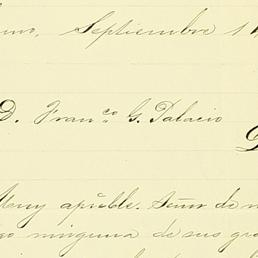 Septiembre 1
D. Fran.co G. Palacio
Muy apr̃ble. Señor de
ninguna de sus gra